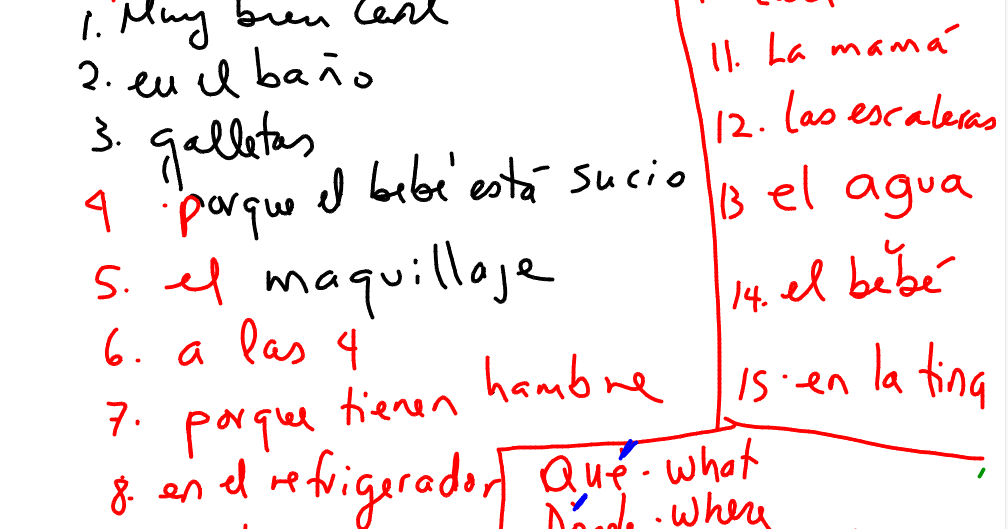 1. Muy bien
2. en el baño
3. galletas
4 porque el bebé está sucio
5. el maquillaje
6. a las 4
7. porque tienen hambre
8. en el refrigerador
11. La mamá
12. las escaleras
13 el agua
14. el bebé
15. en la tina
Qué - what
- where